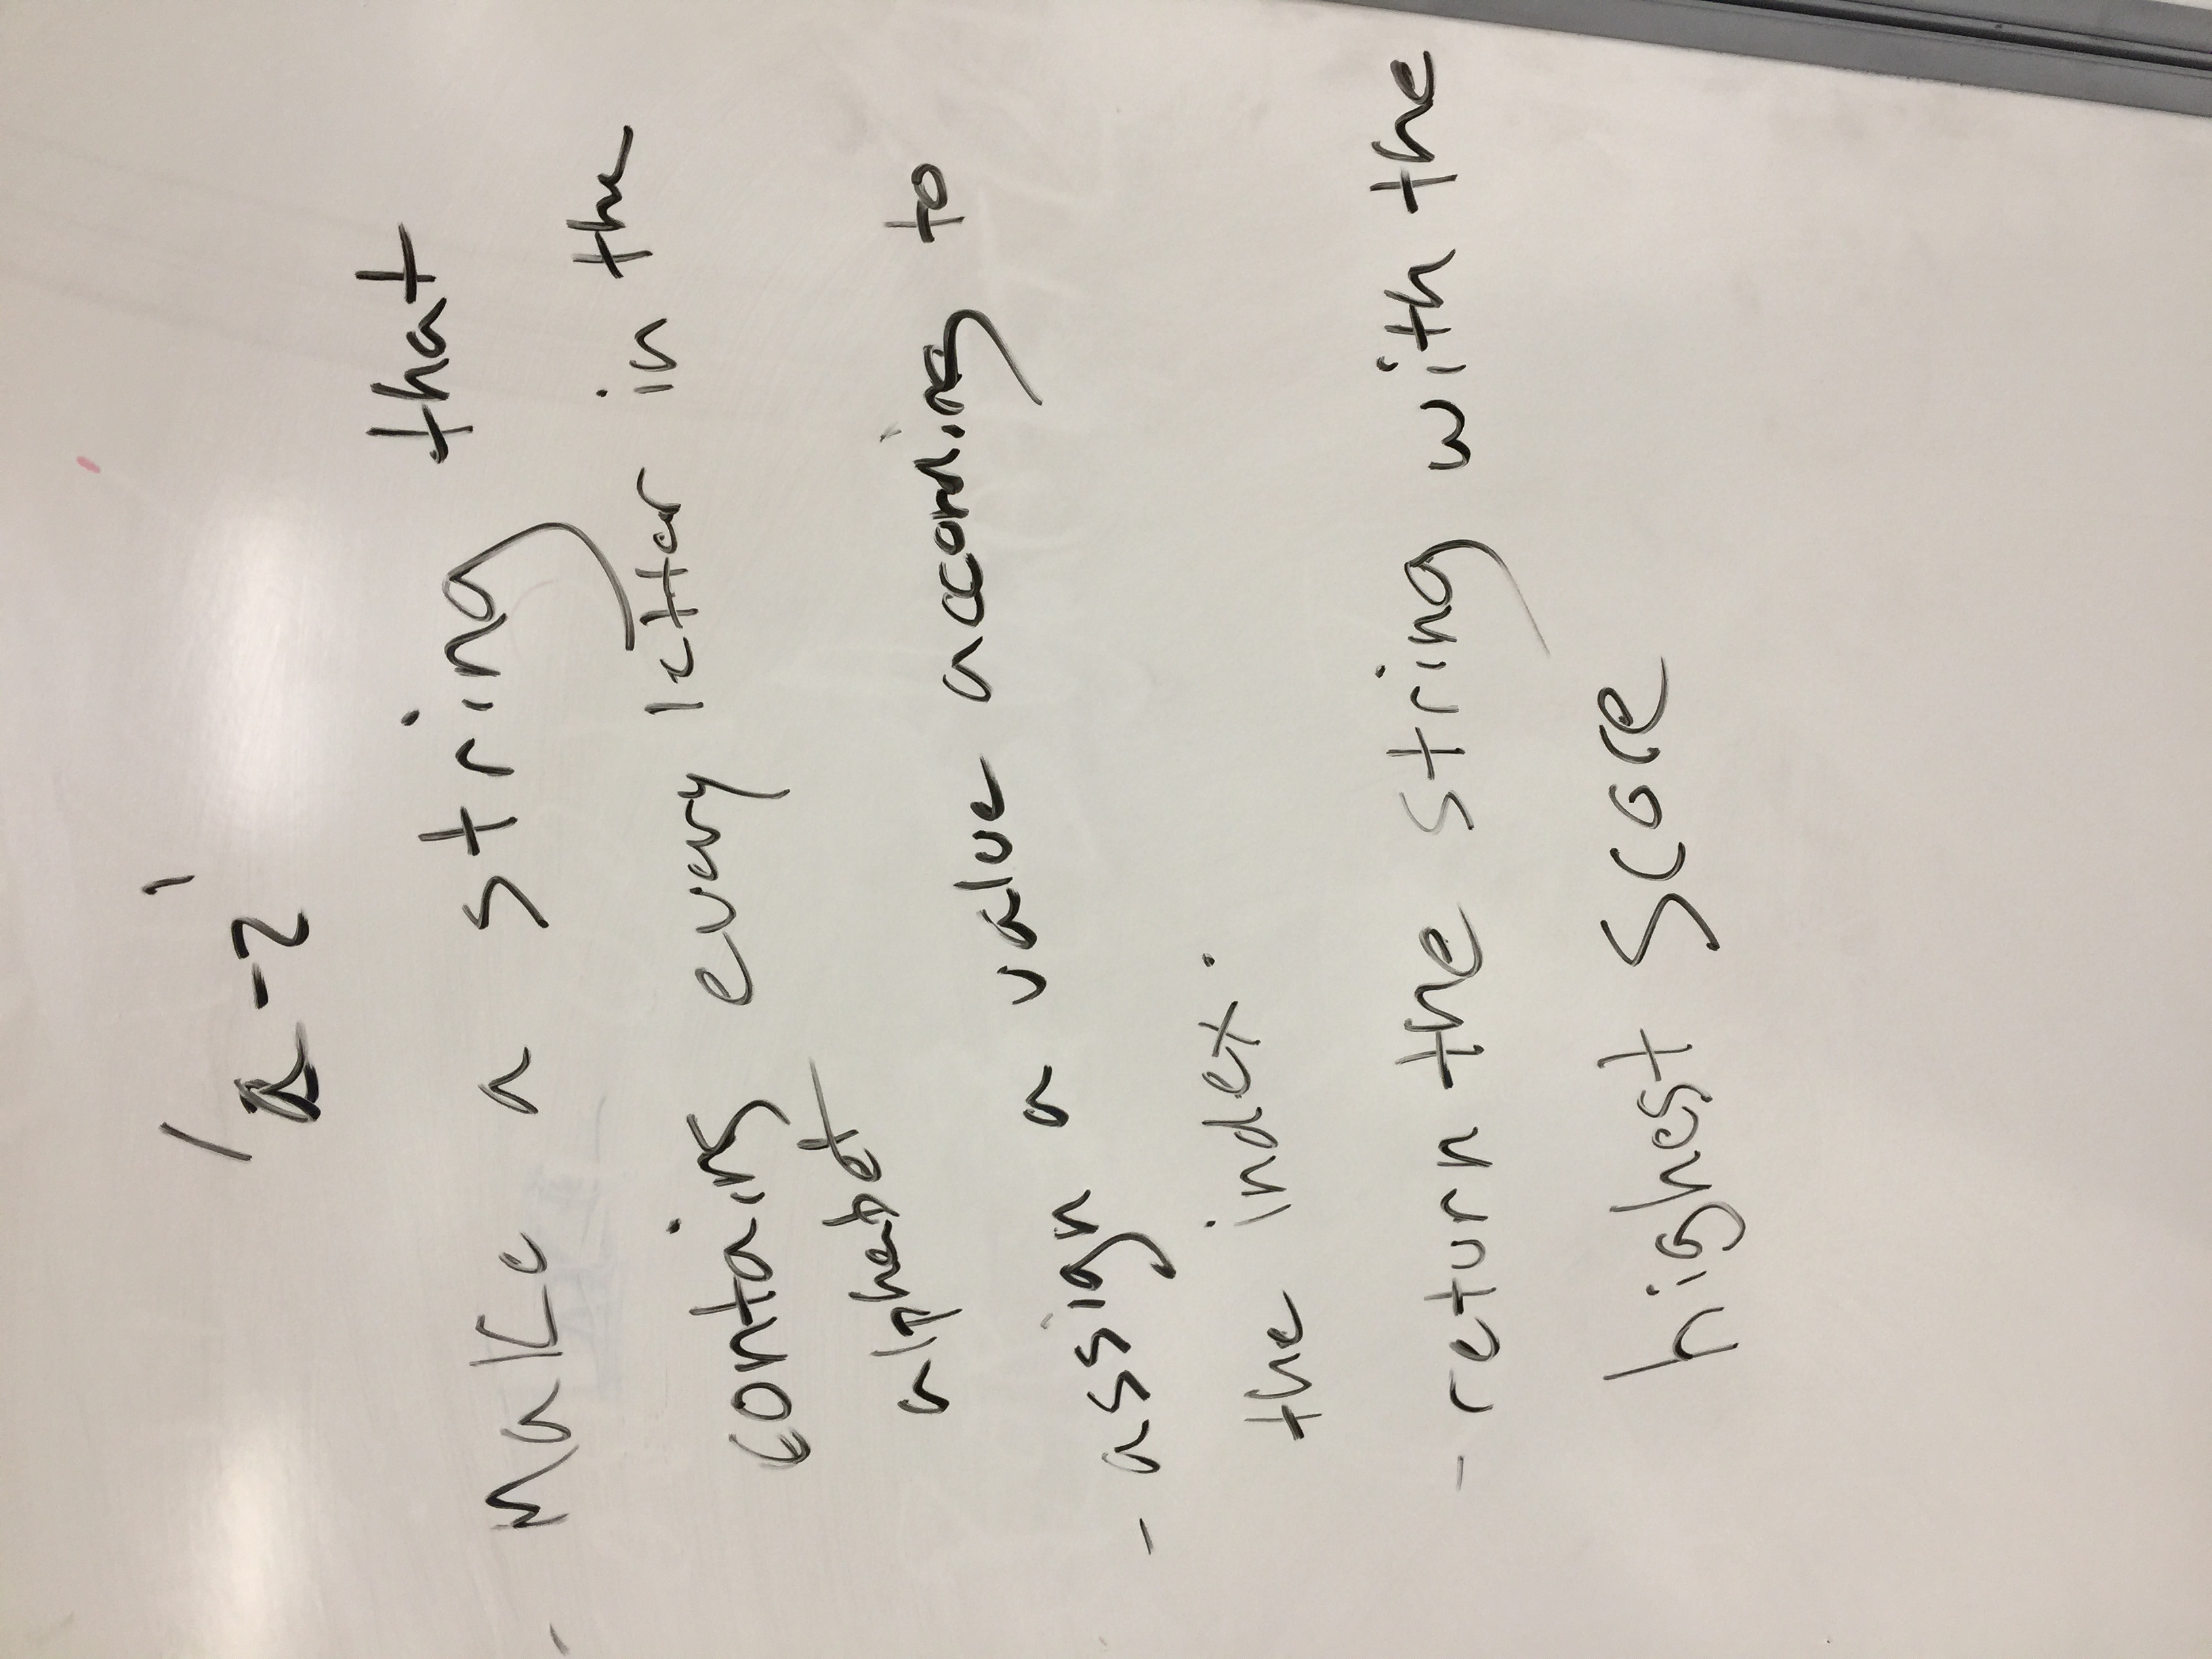 'a-z'
- Make a string that
contains every letter in the
alphabet
- assign a value according to
the index.
- return the string with the
highest score